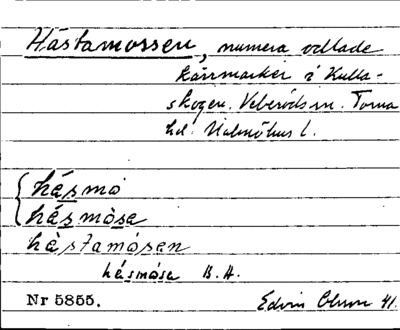 Hästamossen, numera odlade
kärrmarker i Kulla-
skogen. Veberöds sn. Torna
hd. Malmöhus l.
hásmó
hásmósa
hàstamósen
hásmósa B.A.
Nr 5855. Edvin Olson 41.